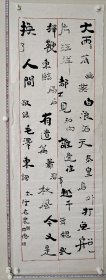 大雨落幽燕白浪滔天秦皇島外打魚船
一片汪洋都不见知向誰边往事越千年魏武
揮鞭東临碣石有遺篇萧瑟秋風今又是
换了人间毛澤東词